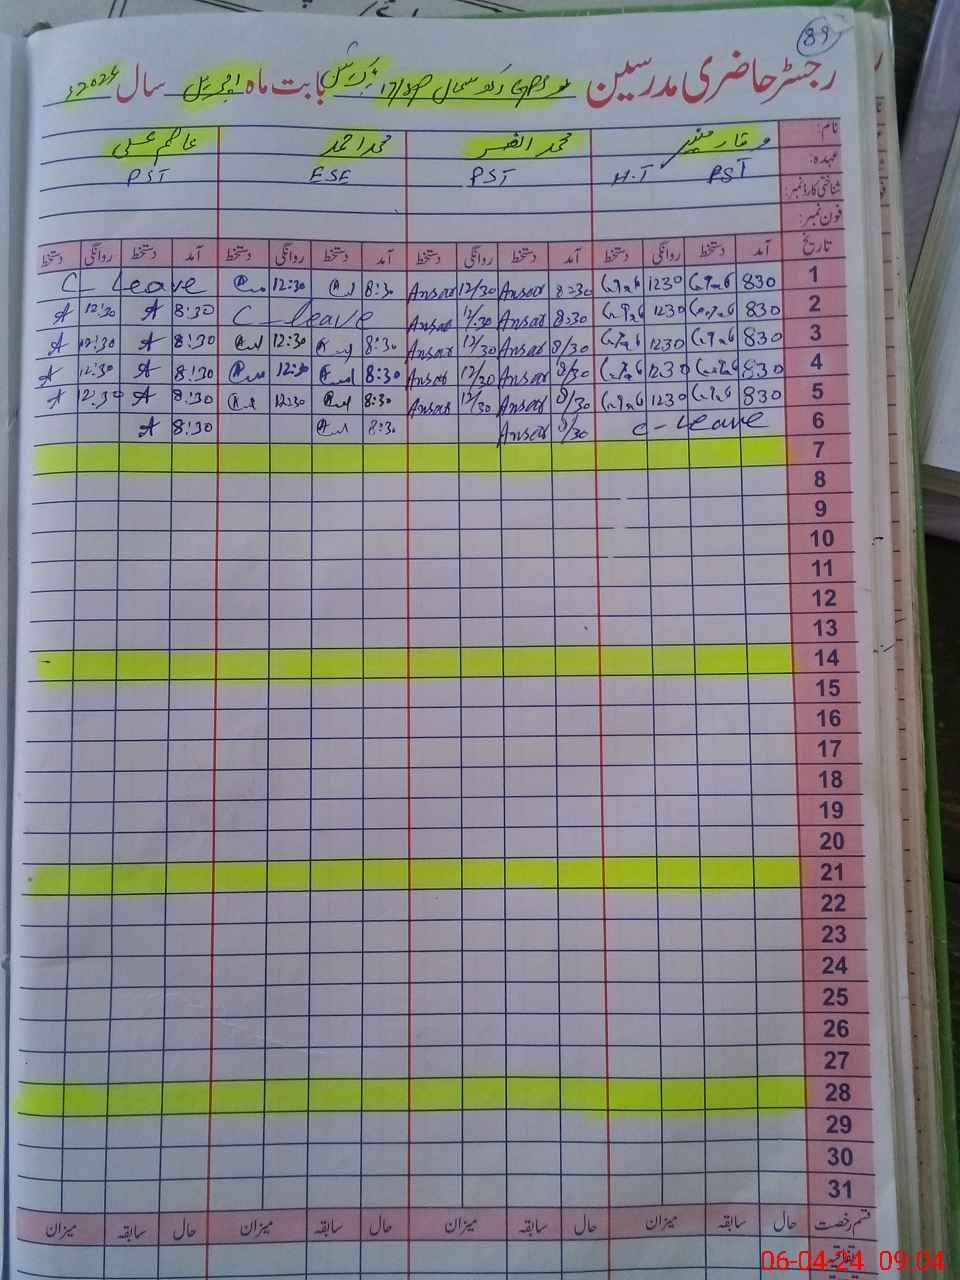 89
رجسٹر حاضری مدرسین بابت ماہ اپریل سال 2024ء
نام: وقار منیر محمد احمد عاصم علی
عہدہ: PST H.T PST ESE PST
شناختی کارڈ نمبر:
فون نمبر:
تاریخ آمد دستخط روانگی دستخط آمد دستخط روانگی دستخط آمد دستخط روانگی دستخط آمد دستخط روانگی دستخط
1 830 1230 8:30 Ansar 12/30 Ansar 8:30 12:30 C-leave
2 830 1230 8:30 Ansar 12/30 Ansar C-leave 8:30 A 12:30 A
3 830 1230 8/30 Ansar 12/30 Ansar 8:30 12:30 8:30 A 12:30 A
4 830 1230 8/30 Ansar 12/30 Ansar 8:30 12:30 8:30 A 12:30 A
5 830 1230 8/30 Ansar 12/30 Ansar 8:30 12:30 8:30 A 12:30 A
6 C-leave 8/30 Ansar 8:30 8:30 A
7
8
9
10
11
12
13
14
15
16
17
18
19
20
21
22
23
24
25
26
27
28
29
30
31
قسم رخصت حال سابقہ میزان حال سابقہ میزان حال سابقہ میزان حال سابقہ میزان
06-04-24 09:04